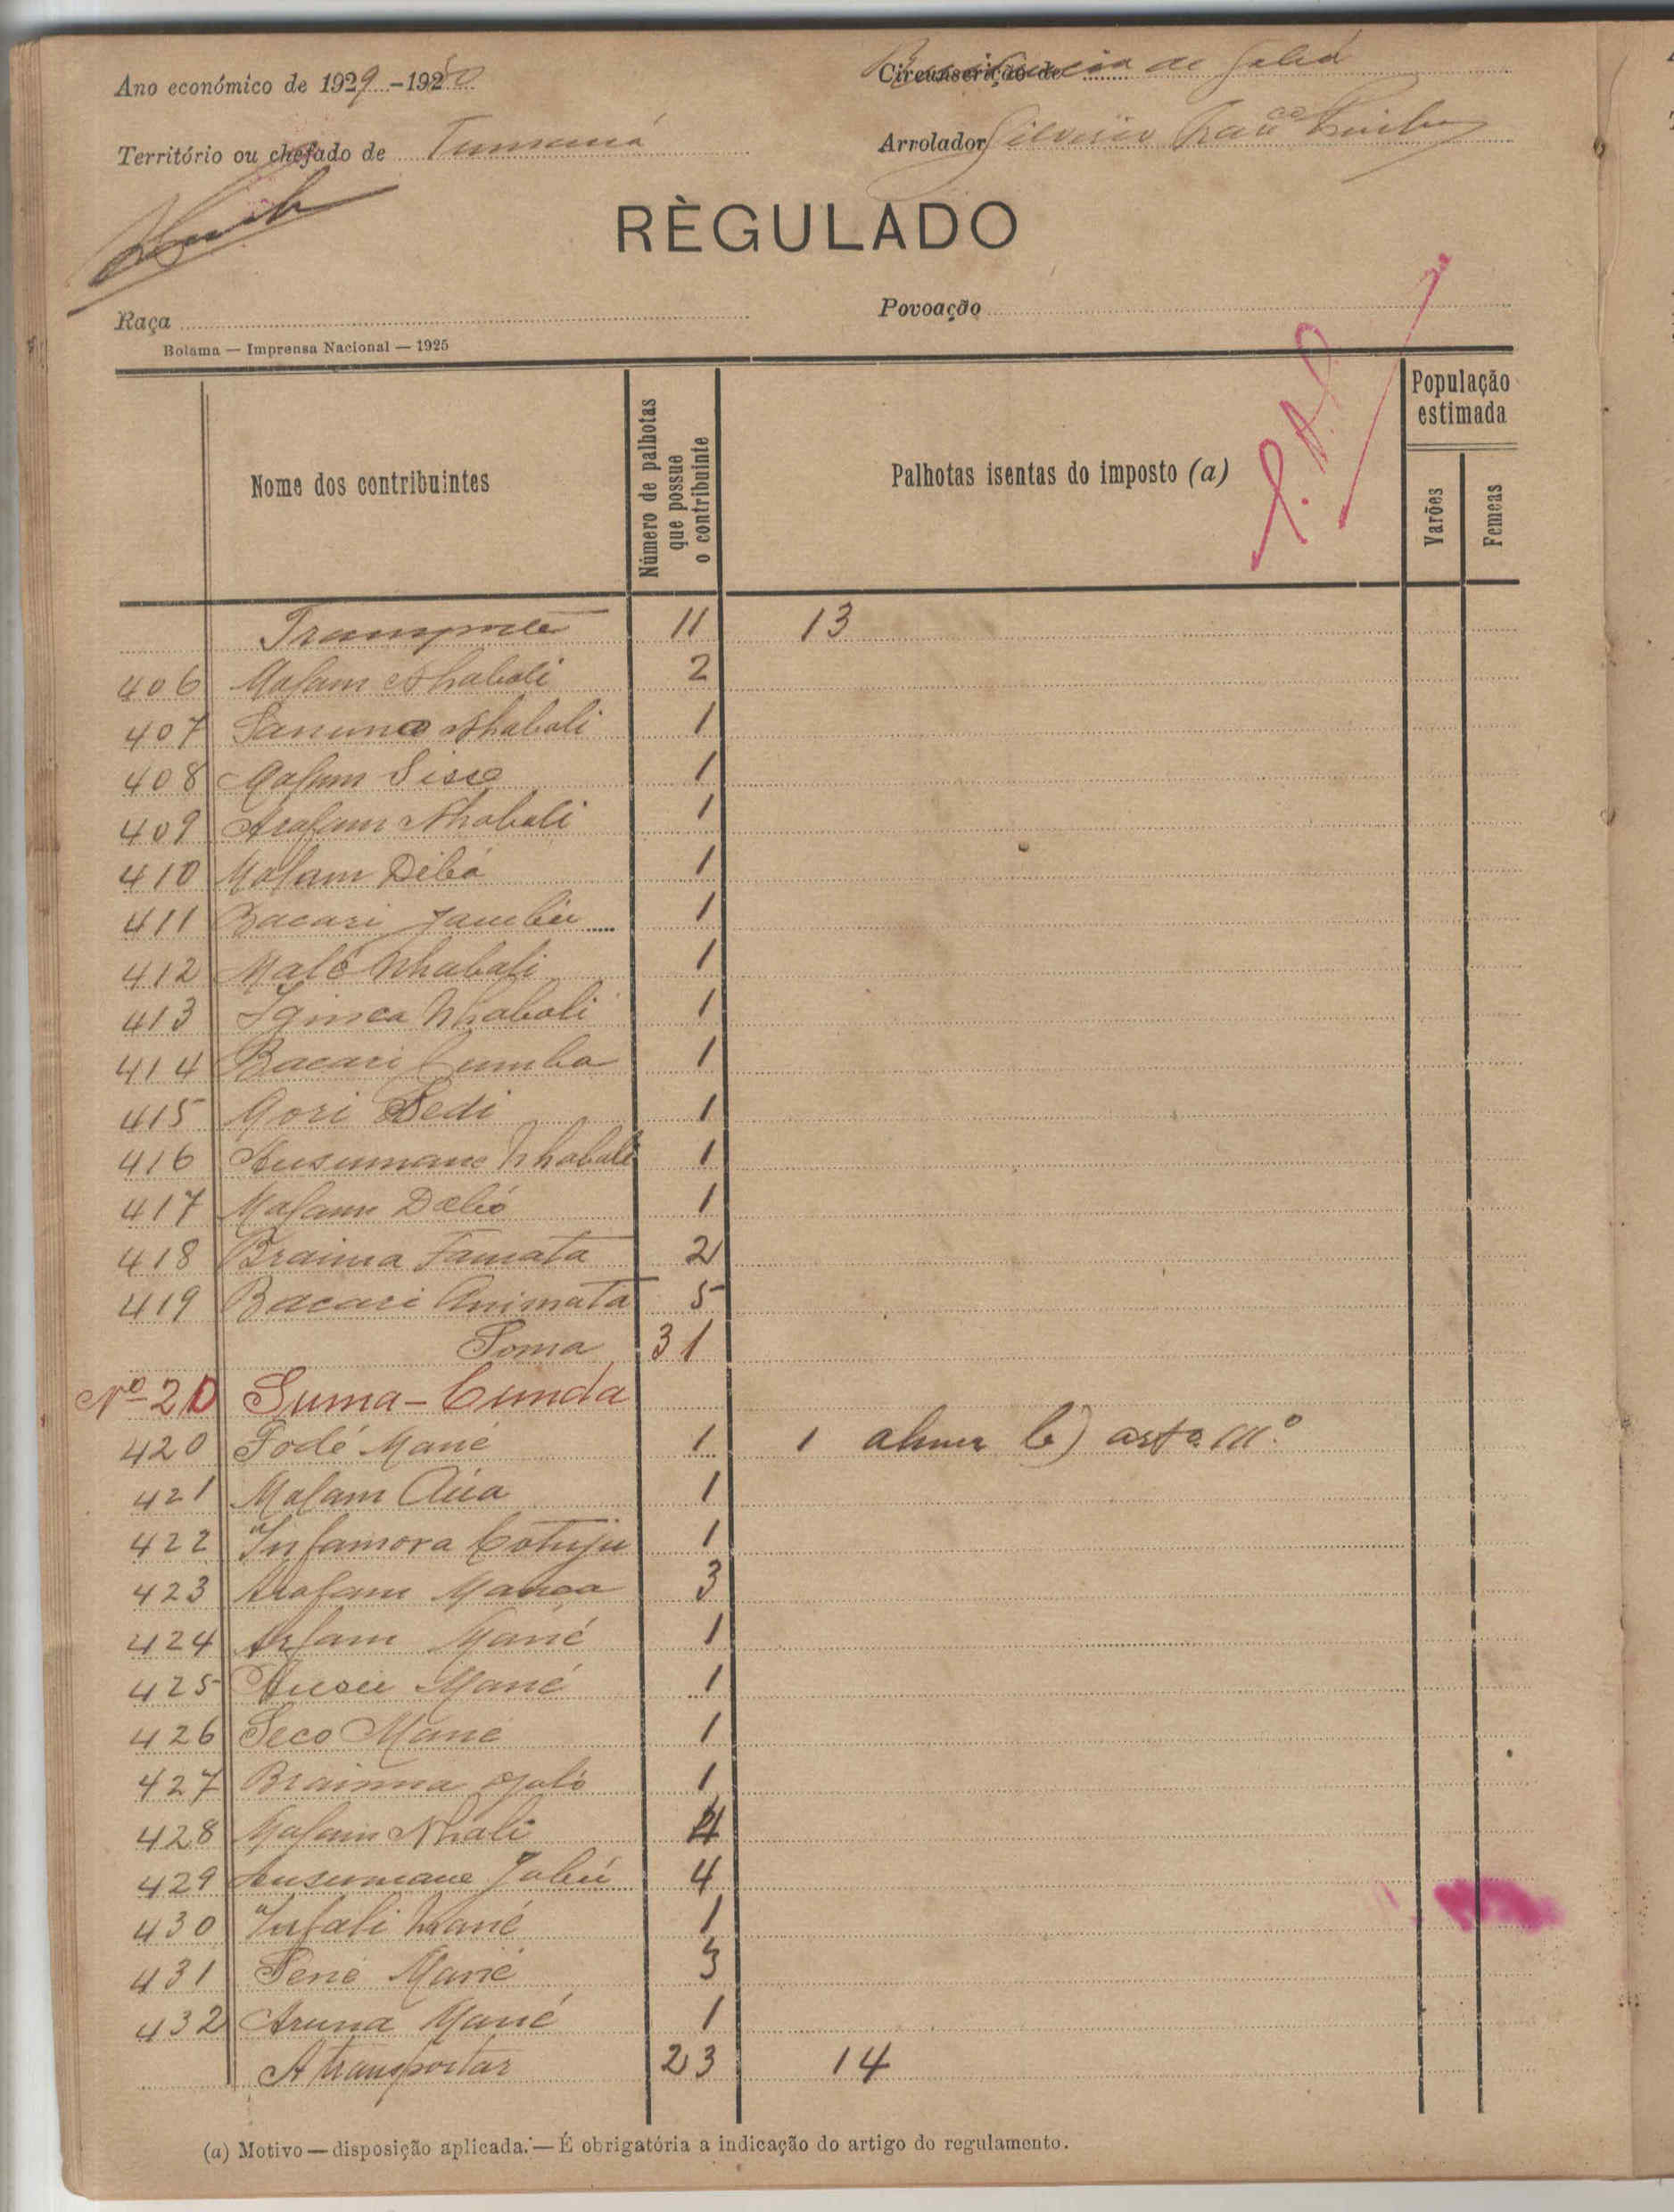 Ano económico de 1929-1930
Circunscrição de Residencia de Gabú
Território ou chefado de Tumaná
Arrolador
RÈGULADO
Raça
Povoação
Bolama — Imprensa Nacional — 1925
Nome dos contribuintes
Número de palhotas que possue o contribuinte
Palhotas isentas do imposto (a)
População estimada
Varões
Femeas
Transporte 11 13
406 Malam Nhabali 2
407 Sanuna Nhabali 1
408 Malam Sisse 1
409 Arafam Nhabali 1
410 Malam Dibá 1
411 Bacari 1
412 Malé Nhabali 1
413 Nhabali 1
414 Bacari Cumba 1
415 Mori Sedi 1
416 Ansumane Nhabali 1
417 Malam Dabó 1
418 Braima Famata 2
419 Bacari Animata 5
Soma 31
Nº 20 Suma-Cunda
420 Fodé Mané 1 1 b)
421 Malam Aua 1
422 Infamora Cotuju 1
423 Arafam Manca 3
424 Mané 1
425 Mané 1
426 Seco Mané 1
427 Braima 1
428 Malam Nhali 4
429 Ansumane Jabú 4
430 Infali Mané 1
431 Sene Mané 3
432 Aruna Mané 1
A transportar 23 14
(a) Motivo — disposição aplicada. — É obrigatória a indicação do artigo do regulamento.